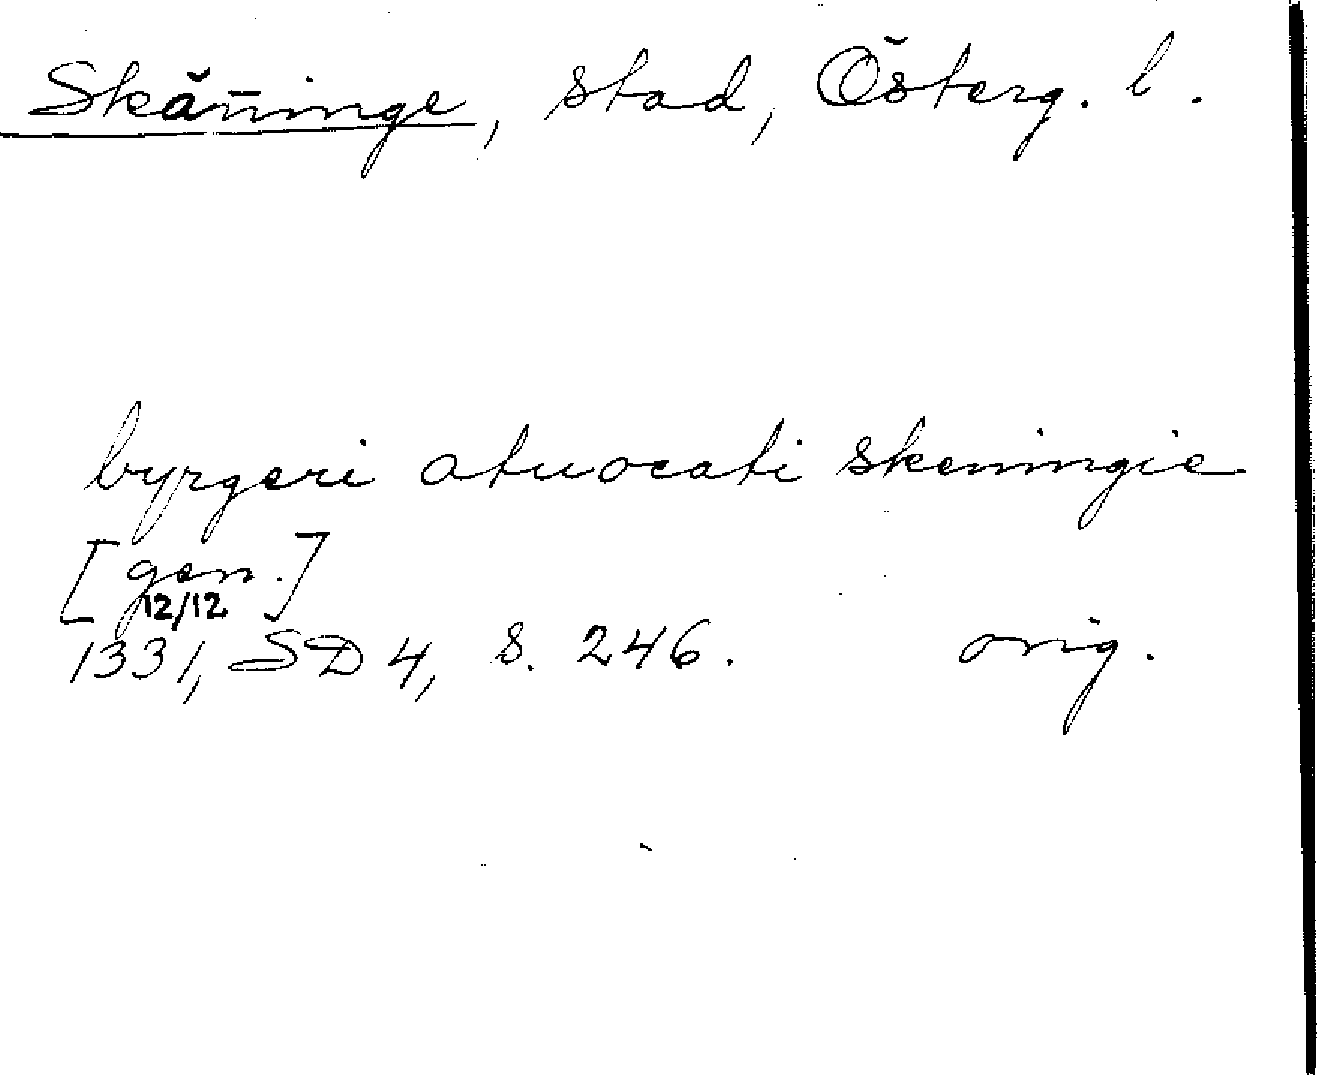 Skänninge, stad, Österg. l.
byrgeri atuocati skeningie
[gen.]
12/12
1331, SD 4, s. 246. orig.